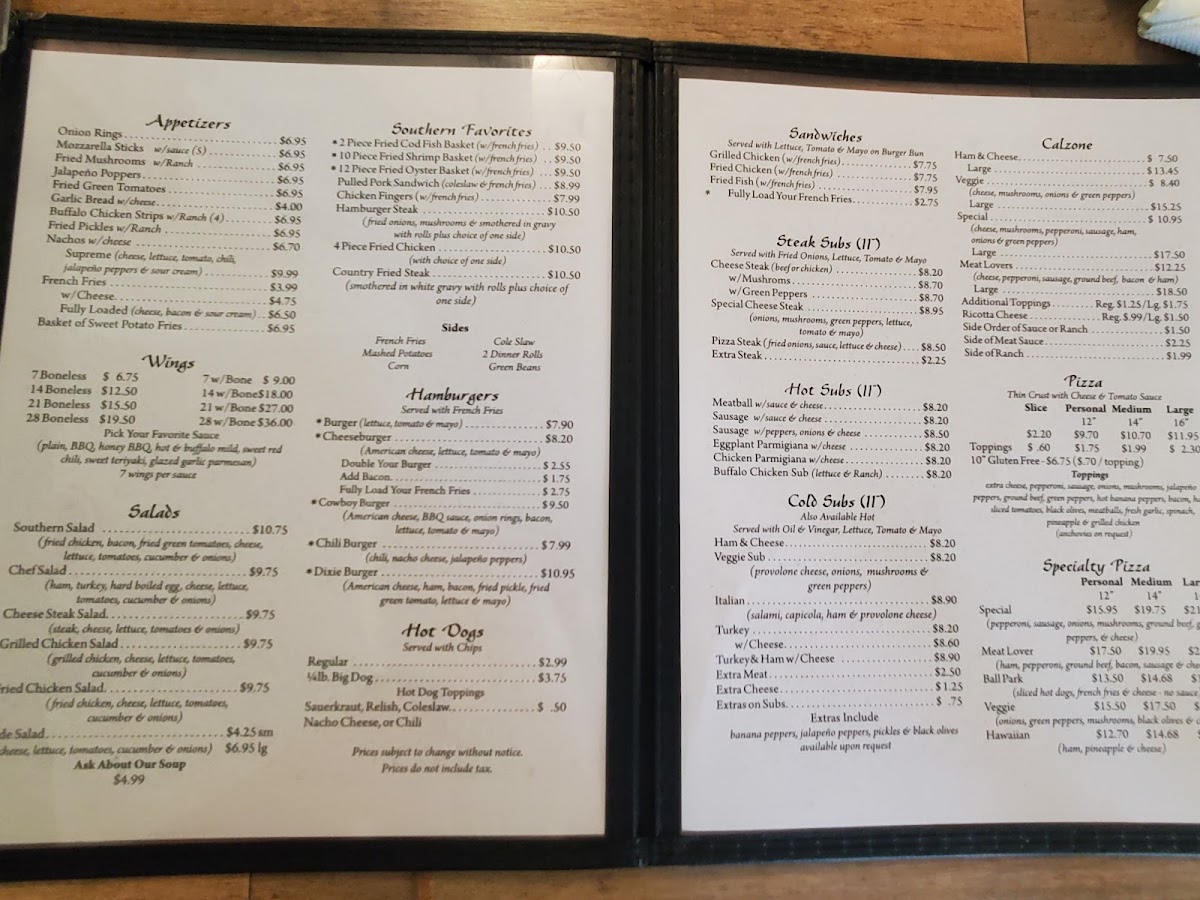 Appetizers
Onion Rings $6.95
Mozzarella Sticks w/sauce (5) $6.95
Fried Mushrooms w/Ranch $6.95
Jalapeño Poppers $6.95
Fried Green Tomatoes $6.95
Garlic Bread w/cheese $4.00
Buffalo Chicken Strips w/Ranch (4) $6.95
Fried Pickles w/Ranch $6.95
Nachos w/cheese $6.70
Supreme (cheese, lettuce, tomato, chili,
jalapeño peppers & sour cream) $9.99
French Fries $3.99
w/Cheese $4.75
Fully Loaded (cheese, bacon & sour cream) $6.50
Basket of Sweet Potato Fries $6.95
Wings
7 Boneless $ 6.75 7 w/Bone $ 9.00
14 Boneless $12.50 14 w/Bone $18.00
21 Boneless $15.50 21 w/Bone $27.00
28 Boneless $19.50 28 w/Bone $36.00
Pick Your Favorite Sauce
(plain, BBQ, honey BBQ, hot & buffalo mild, sweet red
chili, sweet teriyaki, glazed garlic parmesan)
7 wings per sauce
Salads
Southern Salad $10.75
(fried chicken, bacon, fried green tomatoes, cheese,
lettuce, tomatoes, cucumber & onions)
Chef Salad $9.75
(ham, turkey, hard boiled egg, cheese, lettuce,
tomatoes, cucumber & onions)
Cheese Steak Salad $9.75
(steak, cheese, lettuce, tomatoes & onions)
Grilled Chicken Salad $9.75
(grilled chicken, cheese, lettuce, tomatoes,
cucumber & onions)
ried Chicken Salad $9.75
(fried chicken, cheese, lettuce, tomatoes,
cucumber & onions)
de Salad $4.25 sm
cheese, lettuce, tomatoes, cucumber & onions) $6.95 lg
Ask About Our Soup
$4.99
Southern Favorites
* 2 Piece Fried Cod Fish Basket (w/french fries) $9.50
* 10 Piece Fried Shrimp Basket (w/french fries) $9.50
* 12 Piece Fried Oyster Basket (w/french fries) $9.50
Pulled Pork Sandwich (coleslaw & french fries) $8.99
Chicken Fingers (w/french fries) $7.99
Hamburger Steak $10.50
(fried onions, mushrooms & smothered in gravy
with rolls plus choice of one side)
4 Piece Fried Chicken $10.50
(with choice of one side)
Country Fried Steak $10.50
(smothered in white gravy with rolls plus choice of
one side)
Sides
French Fries Cole Slaw
Mashed Potatoes 2 Dinner Rolls
Corn Green Beans
Hamburgers
Served with French Fries
* Burger (lettuce, tomato & mayo) $7.90
* Cheeseburger $8.20
(American cheese, lettuce, tomato & mayo)
Double Your Burger $ 2.55
Add Bacon $ 1.75
Fully Load Your French Fries $ 2.75
* Cowboy Burger $9.50
(American cheese, BBQ sauce, onion rings, bacon,
lettuce, tomato & mayo)
* Chili Burger $7.99
(chili, nacho cheese, jalapeño peppers)
* Dixie Burger $10.95
(American cheese, ham, bacon, fried pickle, fried
green tomato, lettuce & mayo)
Hot Dogs
Served with Chips
Regular $2.99
¼lb. Big Dog $3.75
Hot Dog Toppings
Sauerkraut, Relish, Coleslaw $ .50
Nacho Cheese, or Chili
Prices subject to change without notice.
Prices do not include tax.
Sandwiches
Served with Lettuce, Tomato & Mayo on Burger Bun
Grilled Chicken (w/french fries) $7.75
Fried Chicken (w/french fries) $7.75
Fried Fish (w/french fries) $7.95
* Fully Load Your French Fries $2.75
Steak Subs (11")
Served with Fried Onions, Lettuce, Tomato & Mayo
Cheese Steak (beef or chicken) $8.20
w/Mushroms $8.70
w/Green Peppers $8.70
Special Cheese Steak $8.95
(onions, mushrooms, green peppers, lettuce,
tomato & mayo)
Pizza Steak (fried onions, sauce, lettuce & cheese) $8.50
Extra Steak $2.25
Hot Subs (11")
Meatball w/sauce & cheese $8.20
Sausage w/sauce & cheese $8.20
Sausage w/peppers, onions & cheese $8.50
Eggplant Parmigiana w/cheese $8.20
Chicken Parmigiana w/cheese $8.20
Buffalo Chicken Sub (lettuce & Ranch) $8.20
Cold Subs (11")
Also Available Hot
Served with Oil & Vinegar, Lettuce, Tomato & Mayo
Ham & Cheese $8.20
Veggie Sub $8.20
(provolone cheese, onions, mushrooms &
green peppers)
Italian $8.90
(salami, capicola, ham & provolone cheese)
Turkey $8.20
w/Cheese $8.60
Turkey & Ham w/Cheese $8.90
Extra Meat $2.50
Extra Cheese $1.25
Extras on Subs $ .75
Extras Include
banana peppers, jalapeño peppers, pickles & black olives
available upon request
Calzone
Ham & Cheese $ 7.50
Large $13.45
Veggie $ 8.40
(cheese, mushrooms, onions & green peppers)
Large $15.25
Special $ 10.95
(cheese, mushrooms, pepperoni, sausage, ham,
onions & green peppers)
Large $17.50
Meat Lovers $12.25
(cheese, pepperoni, sausage, ground beef, bacon & ham)
Large $18.50
Additional Toppings Reg. $1.25/Lg. $1.75
Ricotta Cheese Reg. $.99/Lg. $1.50
Side Order of Sauce or Ranch $1.50
Side of Meat Sauce $2.25
Side of Ranch $1.99
Pizza
Thin Crust with Cheese & Tomato Sauce
Slice Personal Medium Large
12" 14" 16"
$2.20 $9.70 $10.70 $11.95
Toppings $ .60 $1.75 $1.99 $ 2.30
10" Gluten Free - $6.75 ($.70 / topping)
Toppings
extra cheese, pepperoni, sausage, onions, mushrooms, jalapeño
peppers, ground beef, green peppers, hot banana peppers, bacon, ha
sliced tomatoes, black olives, meatballs, fresh garlic, spinach,
pineapple & grilled chicken
(anchovies on request)
Specialty Pizza
Personal Medium La
12" 14" 1
Special $15.95 $19.75 $21
(pepperoni, sausage, onions, mushrooms, ground beef, g
peppers, & cheese)
Meat Lover $17.50 $19.95 $2
(ham, pepperoni, ground beef, bacon, sausage & che
Ball Park $13.50 $14.68 $1
(sliced hot dogs, french fries & cheese - no sauce
Veggie $15.50 $17.50 $
(onions, green peppers, mushrooms, black olives & c
Hawaiian $12.70 $14.68 $
(ham, pineapple & cheese)